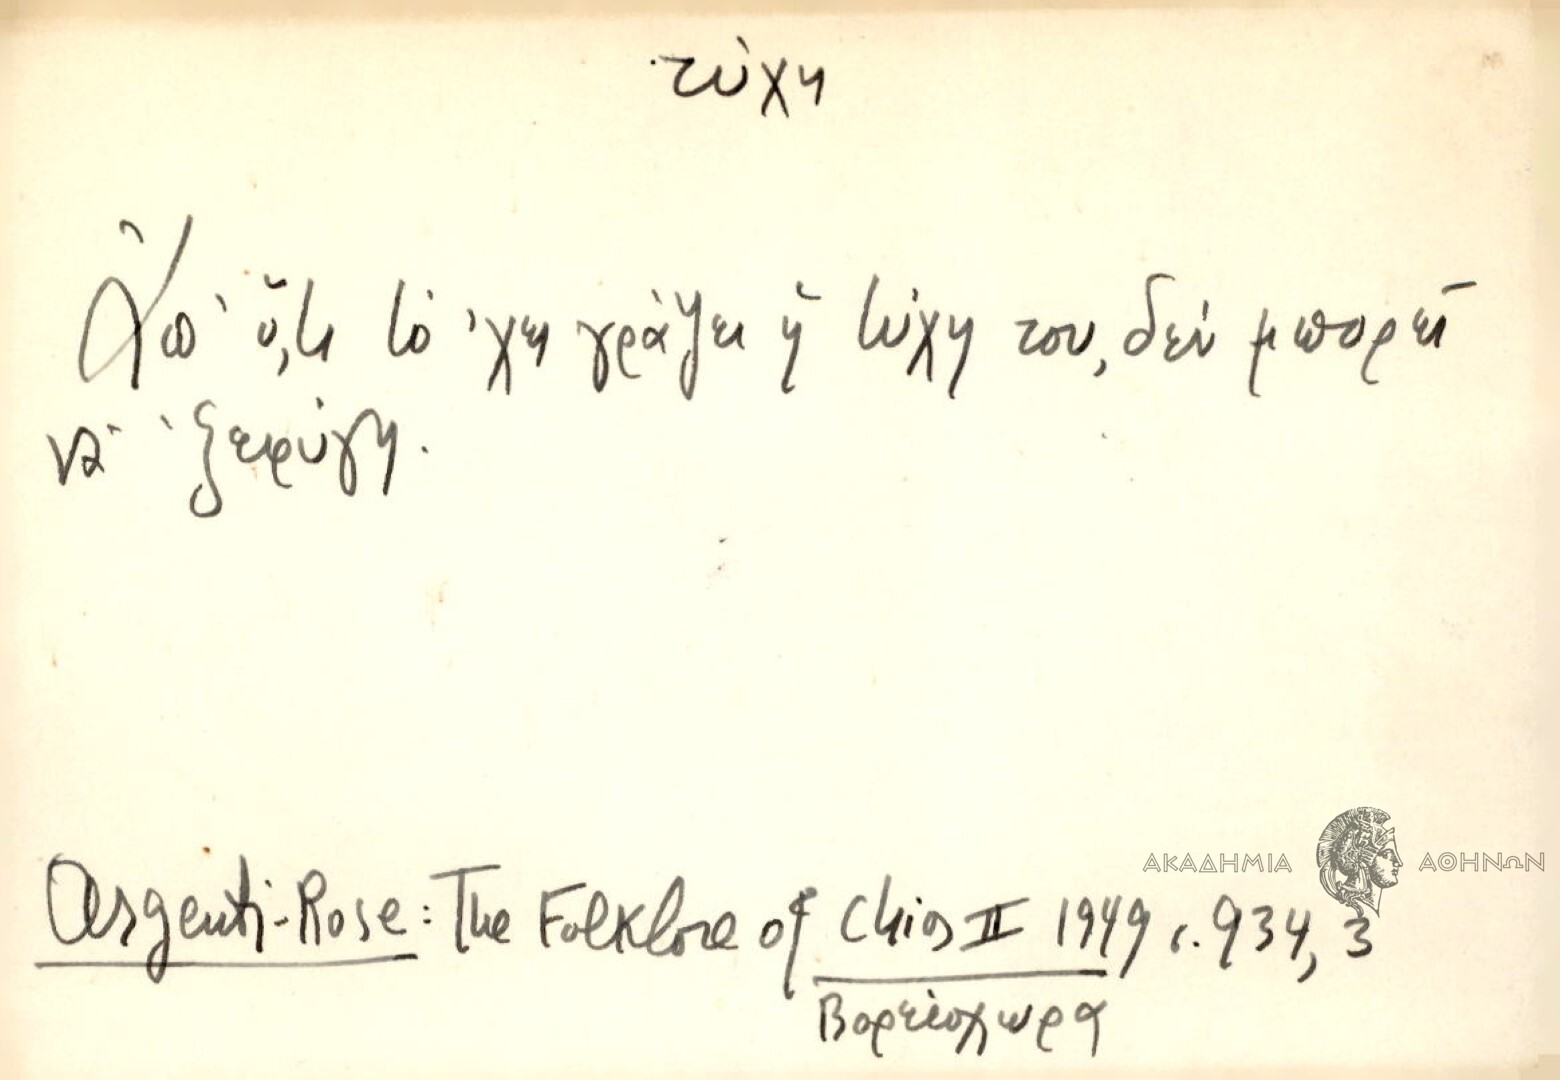 τύχη
Ἀπ' ὅ,τι τὸ 'χει γράψει ἡ τύχη του, δὲν μπορεῖ
νὰ 'ξεφύγη.
ΑΚΑΔΗΜΙΑ ΑΘΗΝΩΝ
Argenti-Rose: The Folklore of Chios II 1949 σ. 934, 3
Βορειόχωρα